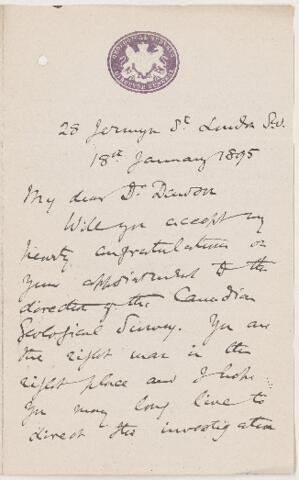 GEOLOGICAL SURVEY
28 Jermyn St London S.W.
18th January 1895
My dear Dr Dawson
Will you accept my
hearty congratulations on
your appointment to the
direction of the Canadian
Geological Survey. You are
the right man in the
right place and I hope
you may long live to
direct the investigation